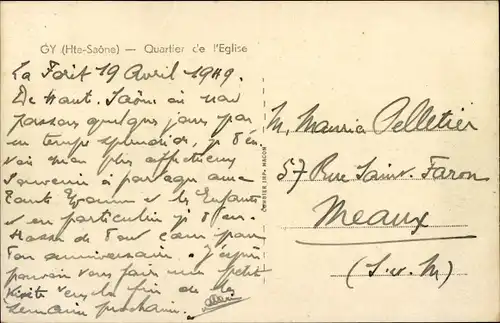 GY (Hte-Saône) — Quartier de l'Eglise
La Forêt 19 Avril 1949.
De Haute-Saône où nous
passons quelques jours par
un temps splendide, je t'en-
voie mon plus affectueux
souvenir à partager avec
tante Yvonne et les Enfants
et en particulier je t'em-
brasse de tout cœur pour
ton anniversaire. J'espère
pouvoir vous faire une petite
visite vers la fin de la
semaine prochaine.
M. Maurice Pelletier
57 Rue Saint-Faron
Meaux
(S.-et-M)
COMBIER IMP. MACON